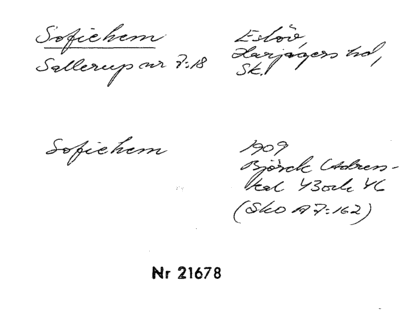 Sofiehem
Eslöv
Sallerup nr 7:18
Harjagers hd,
Sk.
Sofiehem
1909
Björck Adress-
kal
(Sko A7:162)
Nr 21678